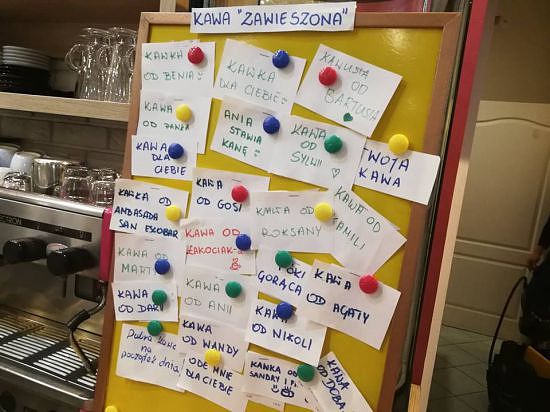 KAWA "ZAWIESZONA"
KAWKA
OD BENIA
KAWKA
DLA CIEBIE
KAWUSIA
OD
BARTUSIA
KAWA
OD
KAWA
DLA
CIEBIE
ANIA
STAWIA
KAWĘ
KAWA
OD
SYLWII
TWOJA
KAWA
KAWKA OD
AMBASADA
SAN ESCOBAR
KAWA
OD GOSI
KAWA OD
ROKSANY
KAWA OD
KAMILI
KAWA
OD
MART
KAWA OD
ŁAKOCIAK
PÓKI
GORĄCA
KAWA
OD AGATY
KAWA
OD DARI
KAWA
OD ANI
KAWA
OD NIKOLI
Dobra kawa
na
początek dnia
KAWA
OD WANDY
ODE MNIE
DLA CIEBIE
KAWKA OD
SANDRY I
KAWA
OD